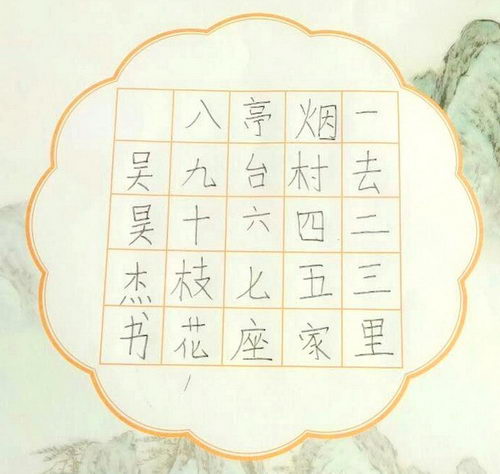 一去二三里
烟村四五家
亭台六七座
八九十枝花
吴昊杰书